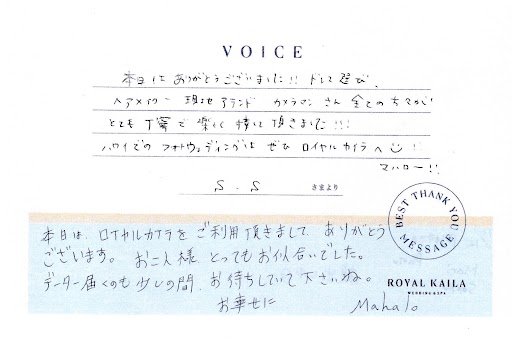 VOICE
本日は ありがとうございました!! ドレス選び、
ヘアメイク 現地アテンド カメラマン さん 全ての方々が
とても 丁寧で 楽しく 過ごし 頂きました!!!
ハワイでの フォトウェディングは ぜひ ロイヤルカイラへ
マハロー!!
S.S さまより
BEST THANK YOU MESSAGE
本日は、ロイヤルカイラを ご利用頂きまして、ありがとう
ございます。 お二人様、とってもお似合いでした。
データー届くのも 少しの間、お待ちしていて下さいね。
お幸せに
Mahalo
ROYAL KAILA
WEDDING & SPA